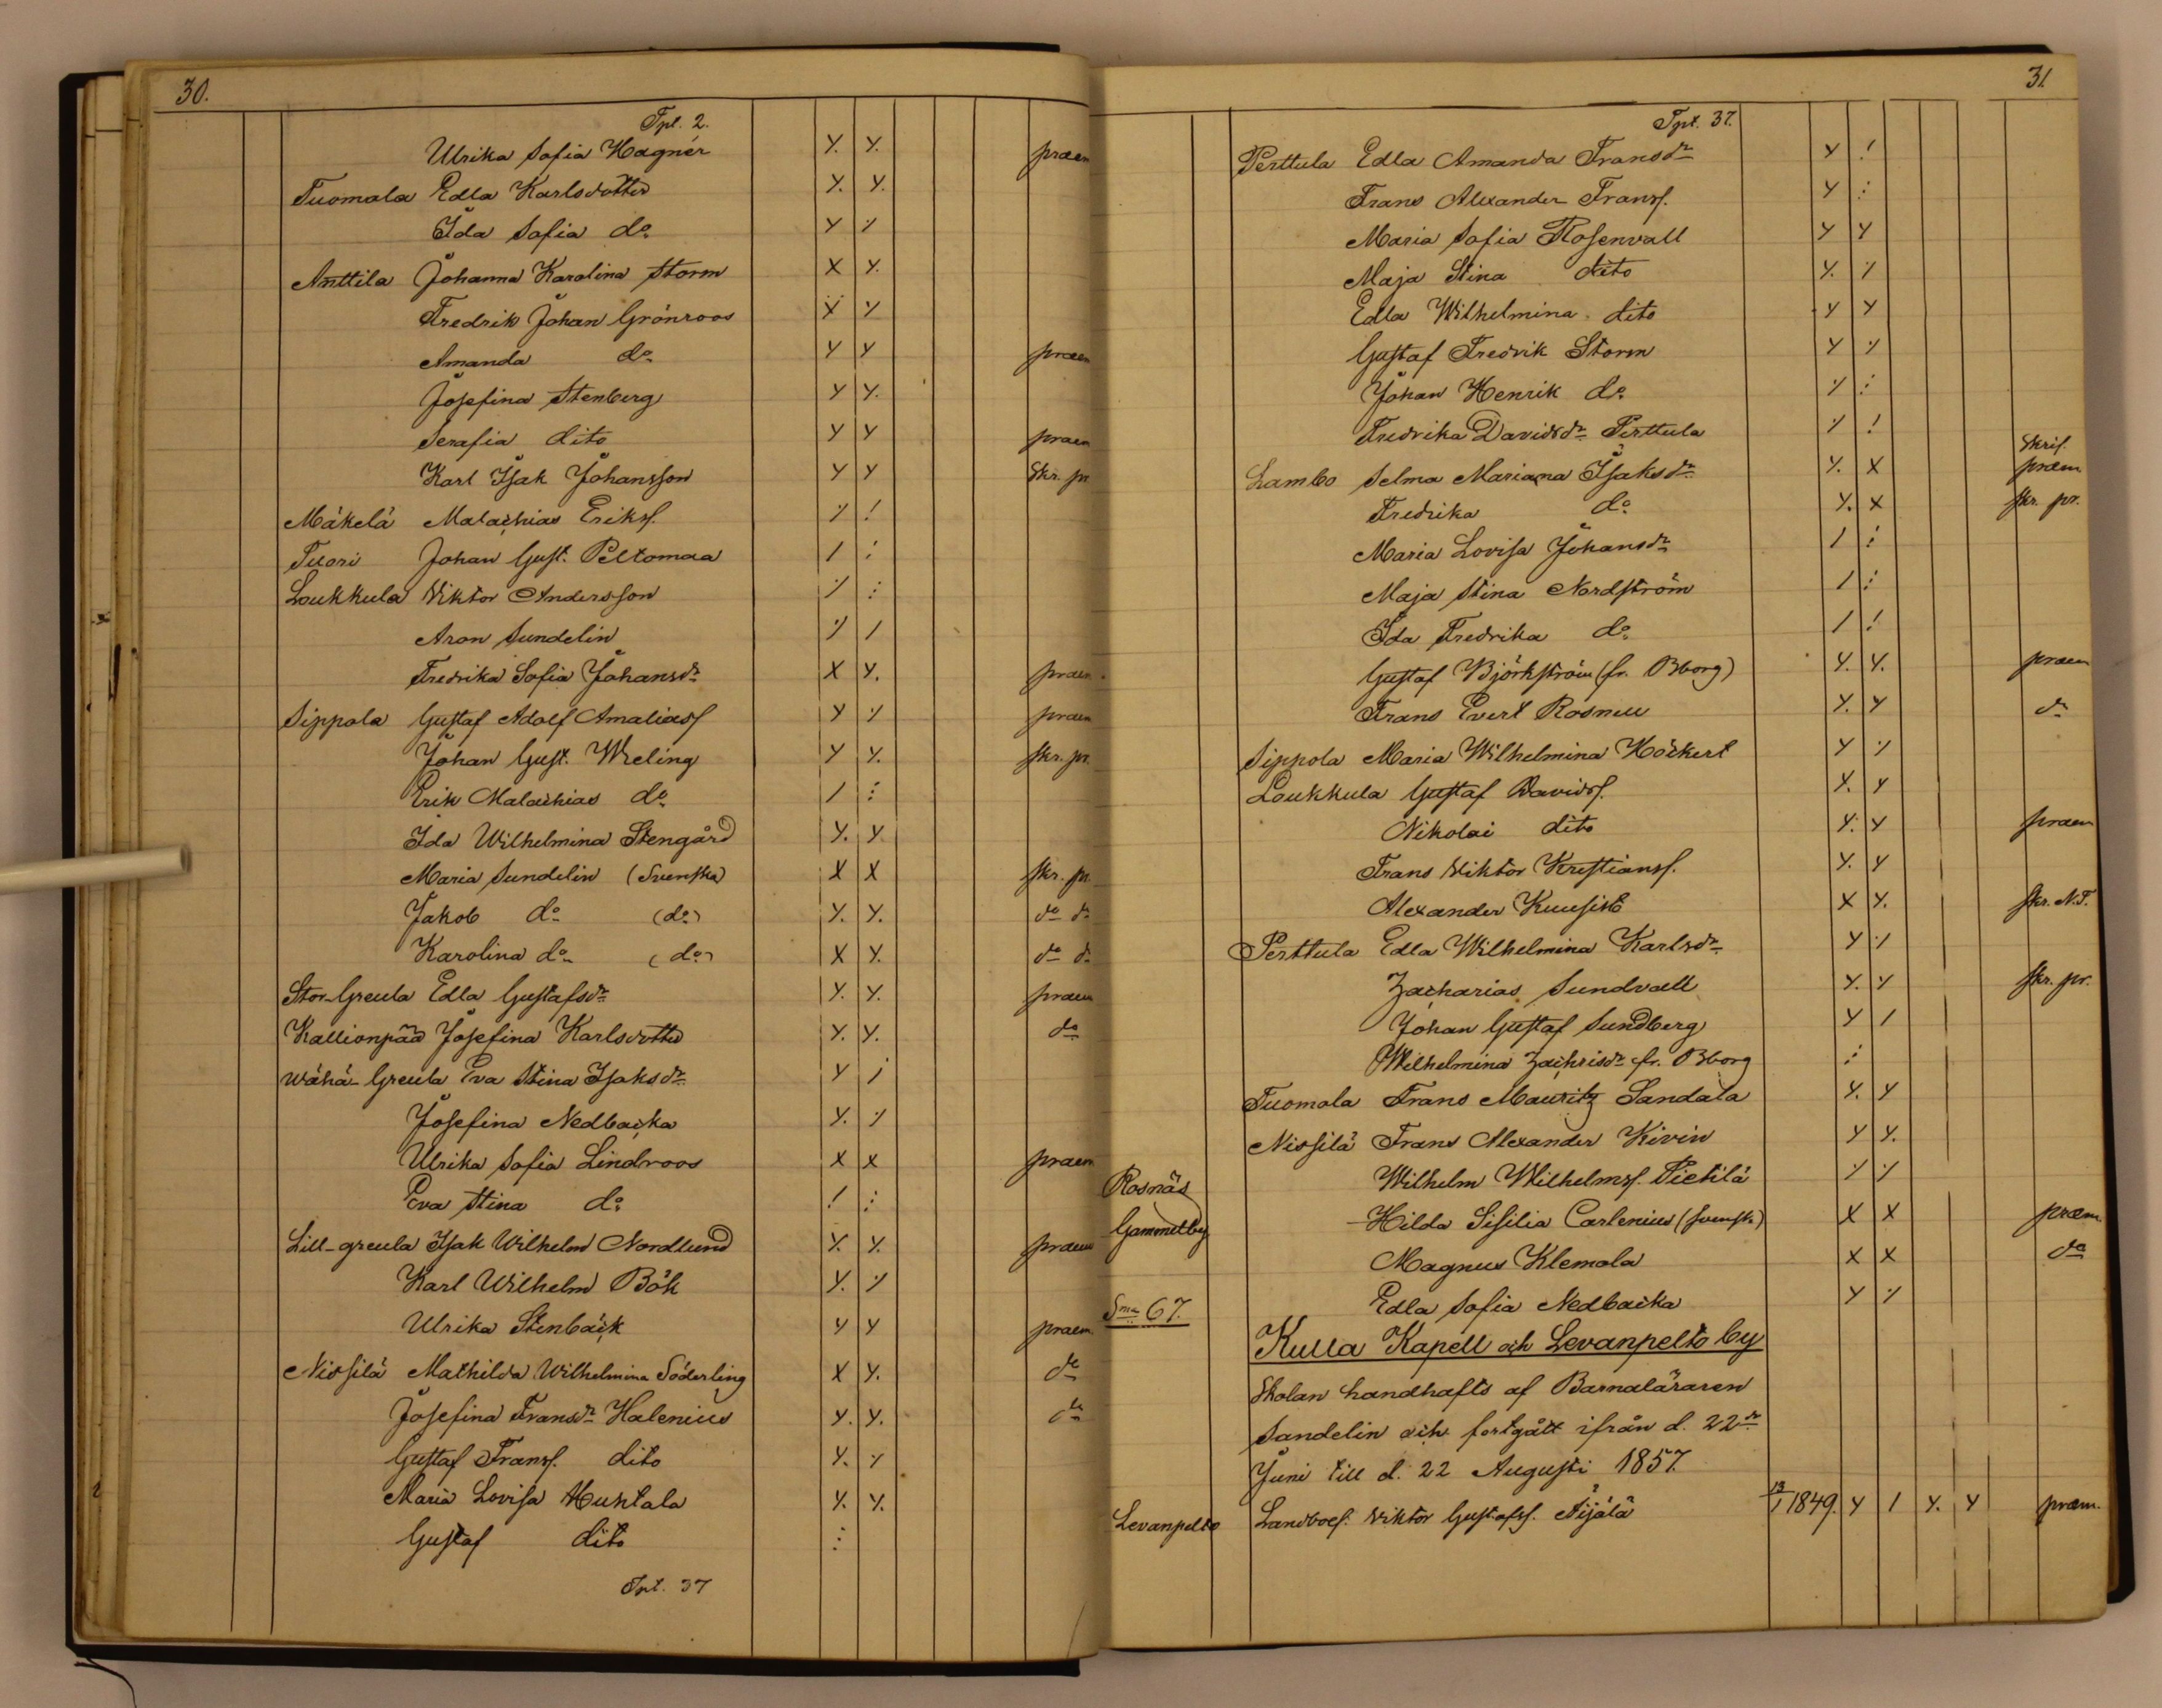 30.
Tpt. 2.
Ulrika Sofia Hagnér Y. Y. praem
Tuomala Edla Karlsdotter Y. Y.
Ida Sofia do Y ٪
Anttila Johanna Karolina Storm X Y.
Fredrik Johan Grönroos X ٪
Amanda do Y Y praem
Josefina Stenberg Y Y.
Serafia dito Y Y praem
Karl Isak Johansson Y Y Skr. pr
Mäkelä Malachias Eriks. ٪ !
Tuori Johan Gust. Peltomaa / :
Loukkula Viktor Andersson ٪ :
Aron Sundelin ٪ /
Fredrika Sofia Johansdr X Y. praem
Sippola Gustaf Adolf Amaliass Y ٪ praem
Johan Gust. Wreling Y Y. skr. pr.
Erik Malachias do / :
Ida Wilhelmina Stengård Y. Y
Maria Sundelin (Svenska) X X skr. pr.
Jakob do (do) Y. Y. do do
Karolina do (do) X Y. do do
Stor-Greula Edla Gustafsdr Y. Y. praem
Kallionpää Josefina Karlsdotter Y. Y. do
Wähä-Greula Eva Stina Isaksdr Y /
Josefina Nedbacka Y. ٪
Ulrika Sofia Lindroos X X praem
Eva Stina do ! :
Lill-greula Isak Wilhelm Nordlund Y. Y. praem
Karl Wilhelm Bök Y. ٪
Ulrika Stenbäck Y Y praem
Nissilä Mathilda Wilhelmina Söderling X Y. do
Josefina Fransdr Halenius Y. Y. do
Gustaf Frans. dito Y. ٪
Maria Lovisa Huhtala Y. Y.
Gustaf dito :
Tpt. 37
31.
Tpt. 37.
Perttula Edla Amanda Fransdr Y !
Frans Alexander Frans. Y :
Maria Sofia Rosenvall Y Y
Maja Stina dito Y. ٪
Edla Wilhelmina dito Y Y
Gustaf Fredrik Storm Y ٪
Johan Henrik do ٪ :
Fredrika Davidsdr Perttula ٪ !
Lambo Selma Mariana Isaksdr Y. X Skrif. praem.
Fredrika do Y. X skr. pr.
Maria Lovisa Johansdr / :
Maja Stina Nordström / :
Ida Fredrika do / !
Gustaf Björkström (fr. Bborg) Y. Y. praem
Frans Evert Rosnell Y. Y do
Sippola Maria Wilhelmina Höckert Y ٪
Loukkula Gustaf Davids. Y. Y
Nikolai dito Y. Y praem
Frans Viktor Kristians. Y. Y
Alexander Kuusisto X Y. skr. N.T.
Perttula Edla Wilhelmina Karlsdr Y ٪
Zacharias Sundvall Y. Y skr. pr.
Johan Gustaf Sundberg Y /
Wilhelmina Zachrisdr fr. Bborg :
Tuomola Frans Mauritz Sandala Y. Y
Nissilä Frans Alexander Kivin Y Y.
Wilhelm Wilhelms. Pietilä ٪ ٪
Rosnäs
Gammelby Hilda Sisilia Carlenius (svensk) X X praem.
Magnus Klemola X X do
Edla Sofia Nedbacka Y ٪
Sma 67.
Kulla Kapell och Levanpelto by
Skolan handhafts af Barnaläraren
Sandelin och fortgått ifrån d. 22dr
Juni till d. 22 Augusti 1857.
Levanpelto Landboes. Viktor Gustafs. Äijälä 13/1 1849. Y / Y. Y praem.